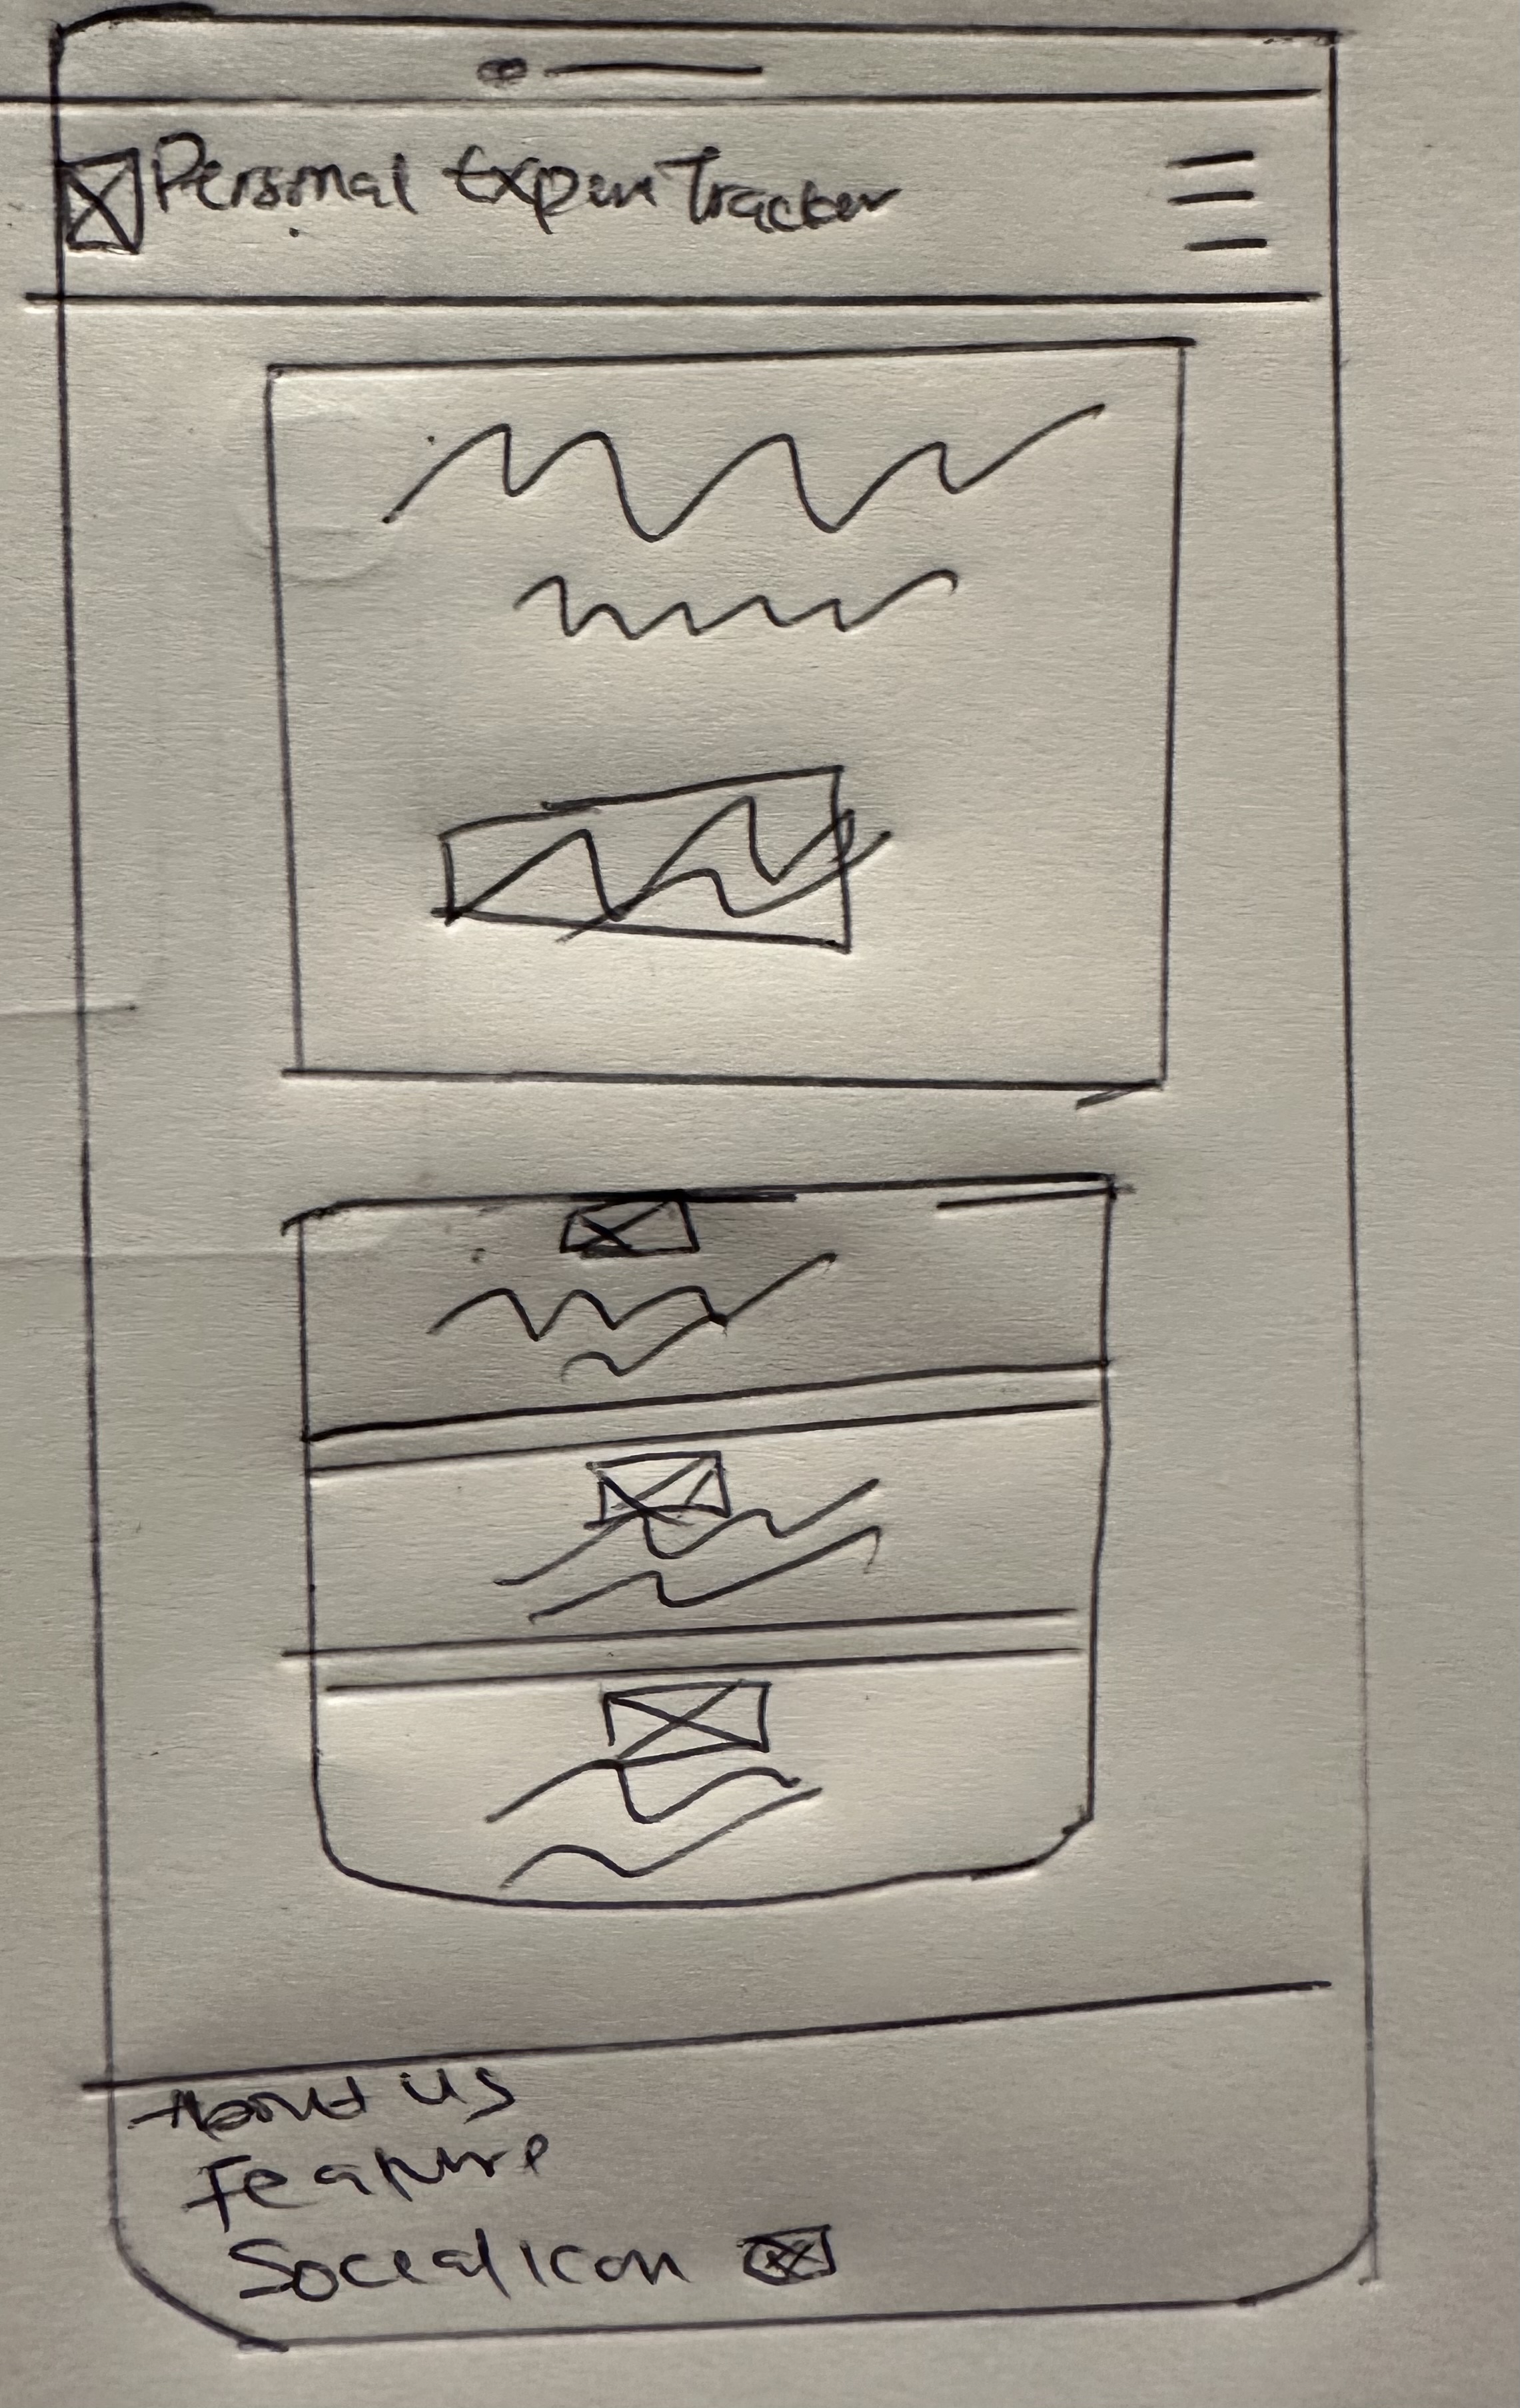 Personal Expen Tracker
About us
Feature
Social icon